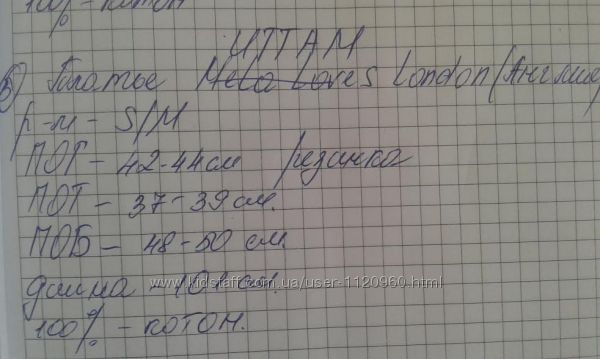 100% - котон
UTTAM
3) Платье Mela Loves London (Англия)
р-м - S/M
ПОГ - 42-44 см резинка
ПОТ - 37-39 см.
ПОБ - 48-50 см.
длина - см.
www.kidstaff.com.ua/user-1120960.html
100% - котон.